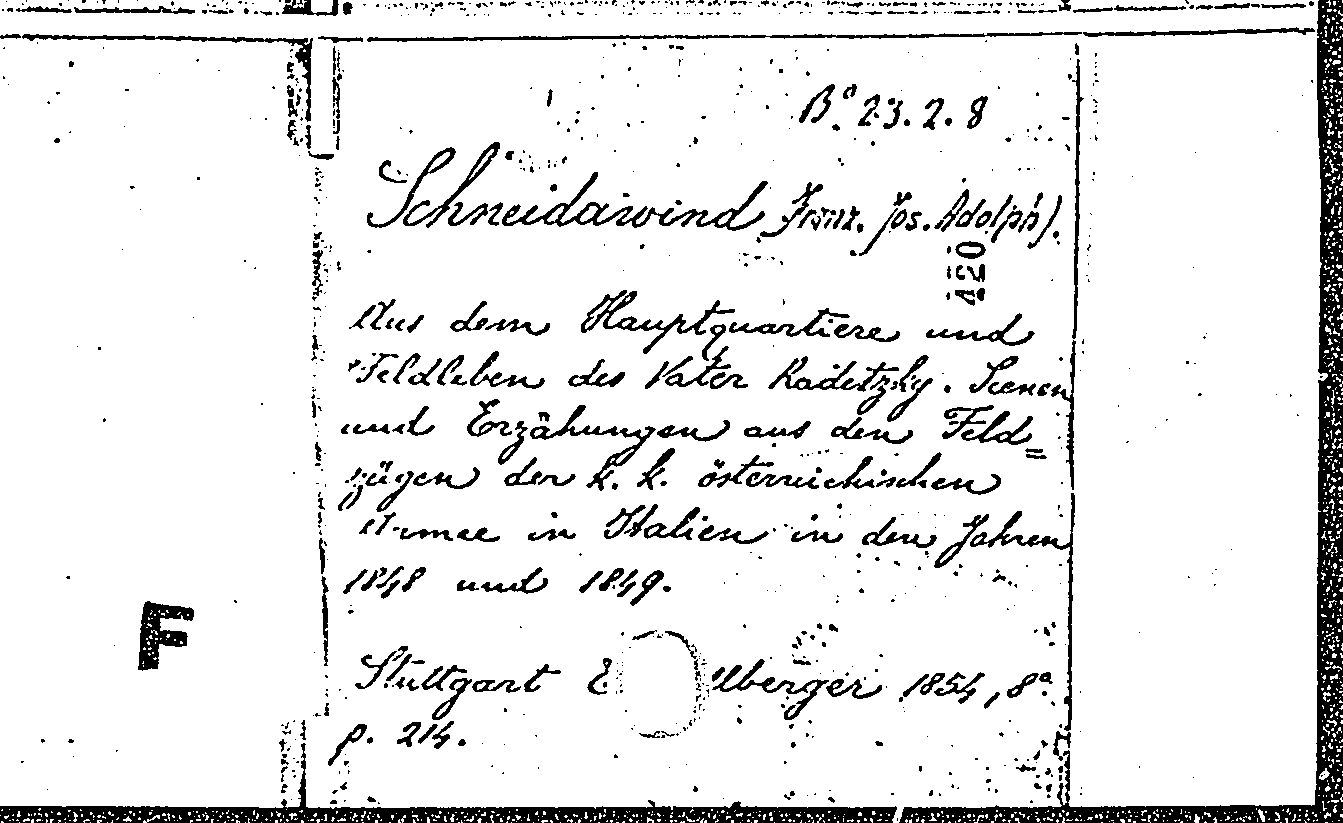 Ba. 23.2.8
Schneidawind Franz. Jos. Adolph).
420
Aus dem Hauptquartiere und
Feldleben des Vater Radetzky. Scenen
und Erzähungen aus den Feld=
zügen der k. k. österreichischen
Armee in Italien in den Jahren
1848 und 1849.
F
Stuttgart 1854, 8°.
p. 214.